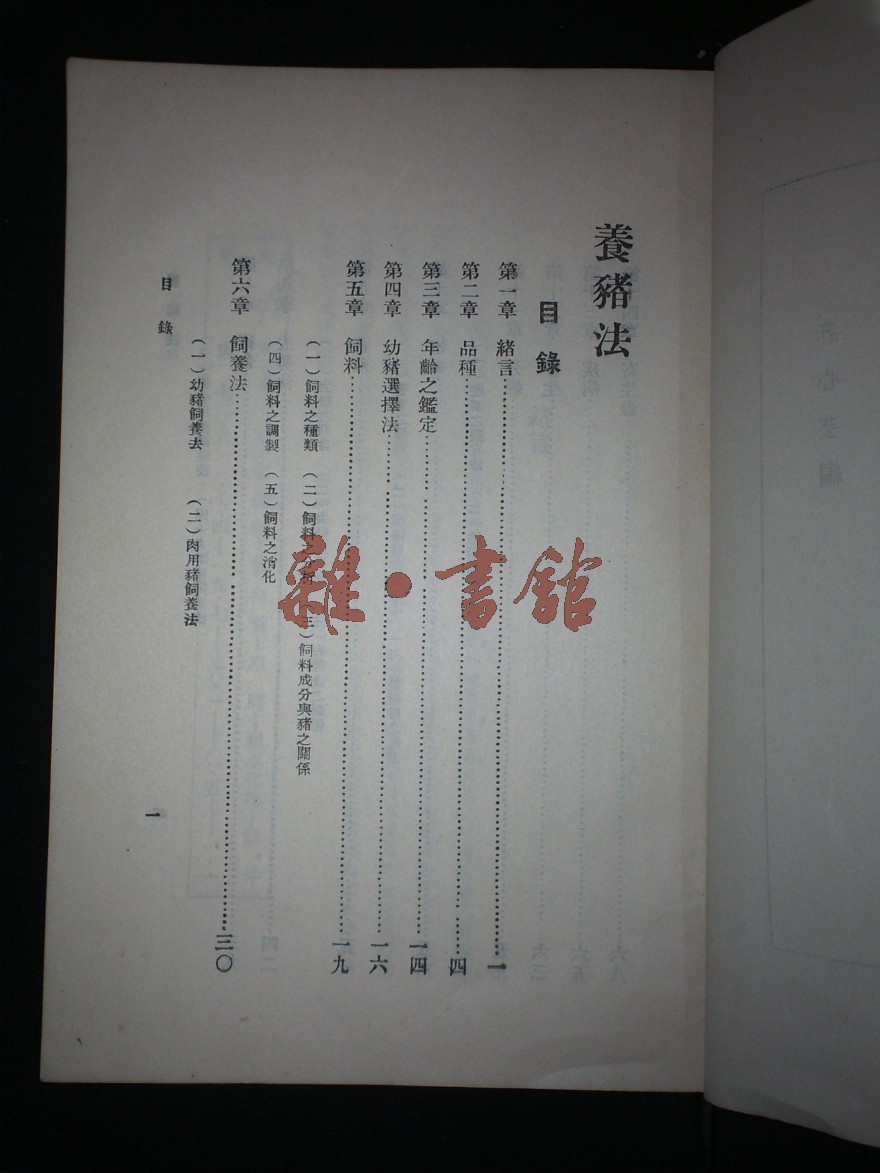 養豬法
目錄
第一章 緒言……一
第二章 品種……四
第三章 年齡之鑑定……一四
第四章 幼豬選擇法……一六
第五章 飼料……一九
（一）飼料之種類 （二）飼料之 三）飼料成分與豬之關係
（四）飼料之調製 （五）飼料之消化
第六章 飼養法……三〇
（一）幼豬飼養去 （二）肉用豬飼養法
目錄
一
雜·書館